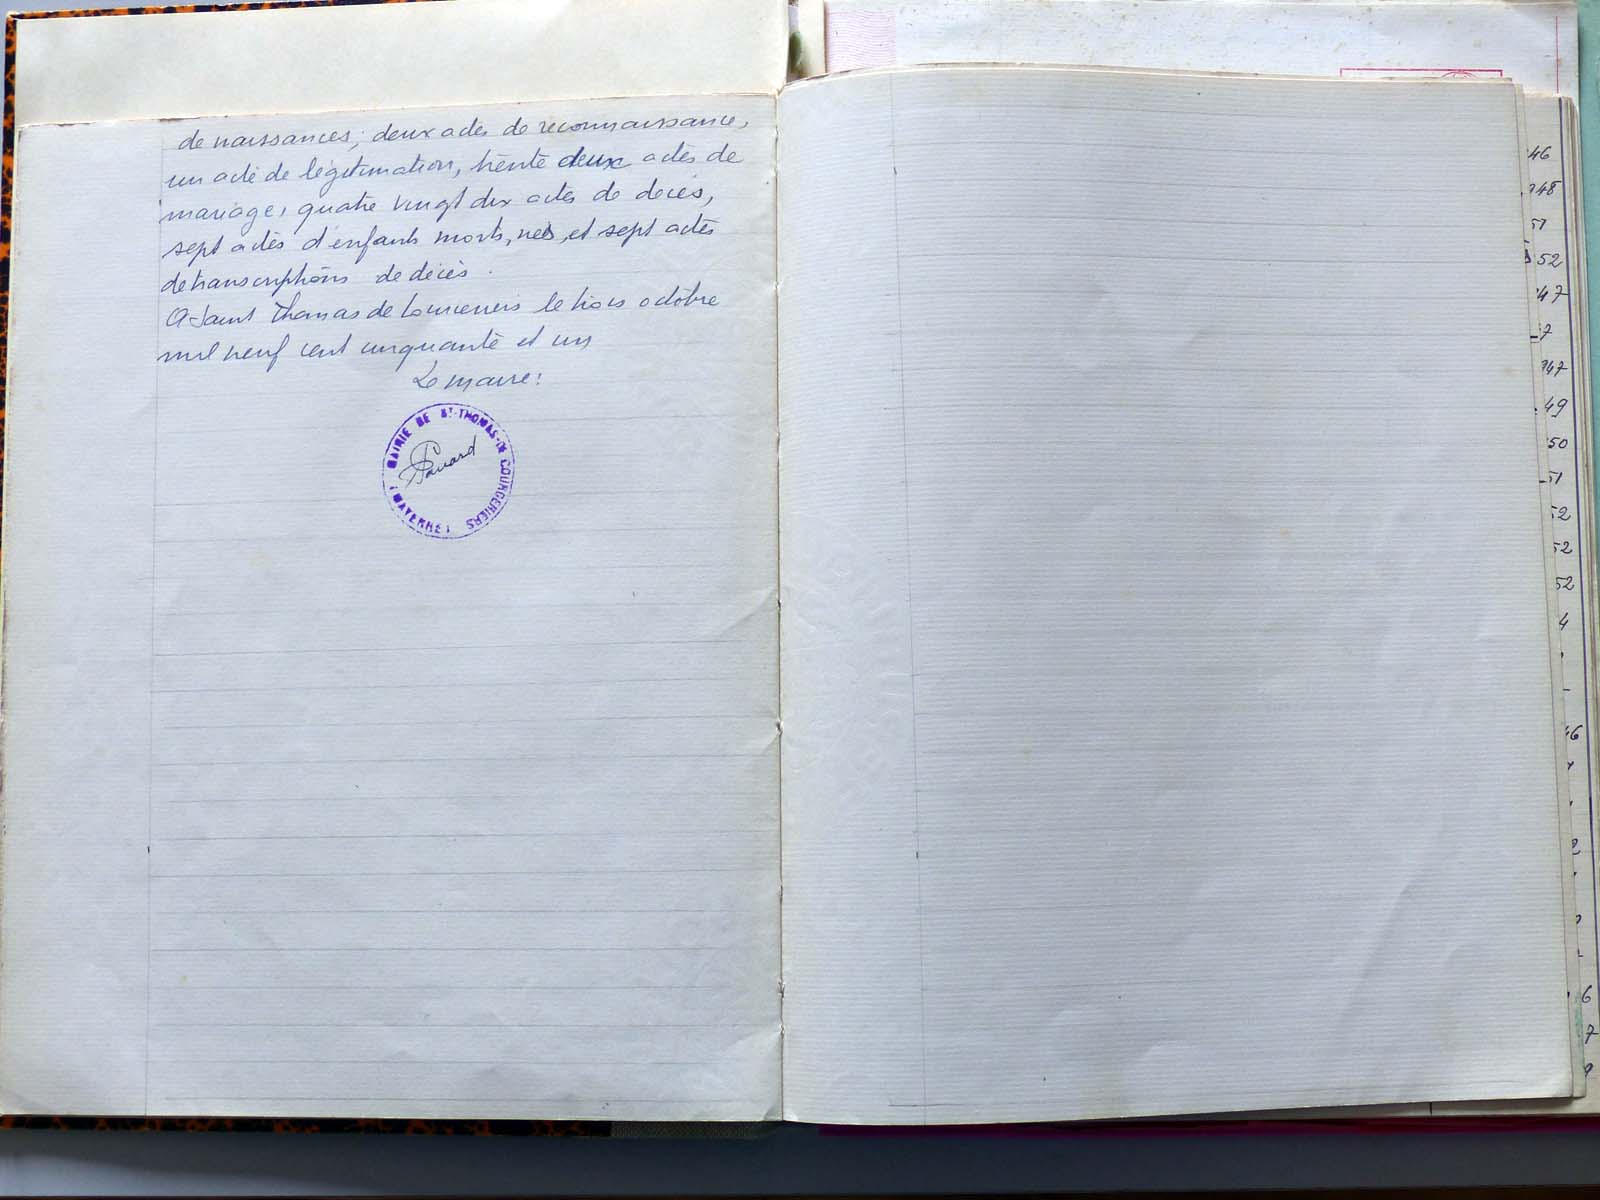 de naissances, deux actes de reconnaissance,
un acte de légitimation, trente deux actes de
mariage, quatre vingt dix actes de décès,
sept actes d'enfants morts, nés, et sept actes
de transcriptions de décès.
A Saint Thomas de Courceriers le trois octobre
mil neuf cent cinquante et un
Le maire:
MAIRIE DE ST-THOMAS-DE COURCERIERS
(MAYENNE)
46
48
51
52
47
7
947
49
50
51
52
52
52
4
46
2
6
7